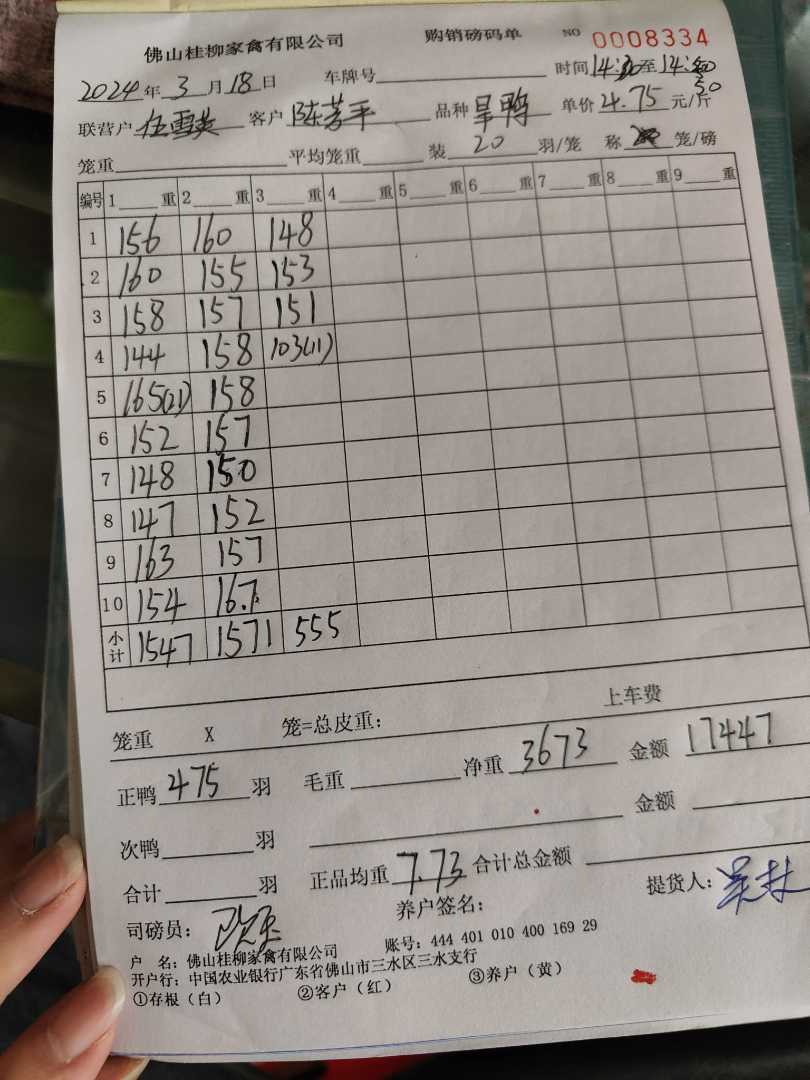 佛山桂柳家禽有限公司 购销磅码单 NO 0008334
2024年 3月18日 车牌号 时间14:20至14:30
联营户 伍雪英 客户 陈芳平 品种 旱鸭 单价 4.75 元/斤
笼重 平均笼重 装 20 羽/笼 称 笼/磅
编号 1 重 2 重 3 重 4 重 5 重 6 重 7 重 8 重 9 重
1 156 160 148
2 160 155 153
3 158 157 151
4 144 158 103(11)
5 165(21) 158
6 152 157
7 148 150
8 147 152
9 163 157
10 154 167
小计 1547 1571 555
上车费
笼重 X 笼=总皮重:
正鸭 475 羽 毛重 净重 3673 金额 17447
次鸭 羽 金额
合计 羽 正品均重 7.73 合计总金额
司磅员: 养户签名: 提货人:
户 名: 佛山桂柳家禽有限公司 账号: 444 401 010 400 169 29
开户行: 中国农业银行广东省佛山市三水区三水支行
①存根(白) ②客户(红) ③养户(黄)